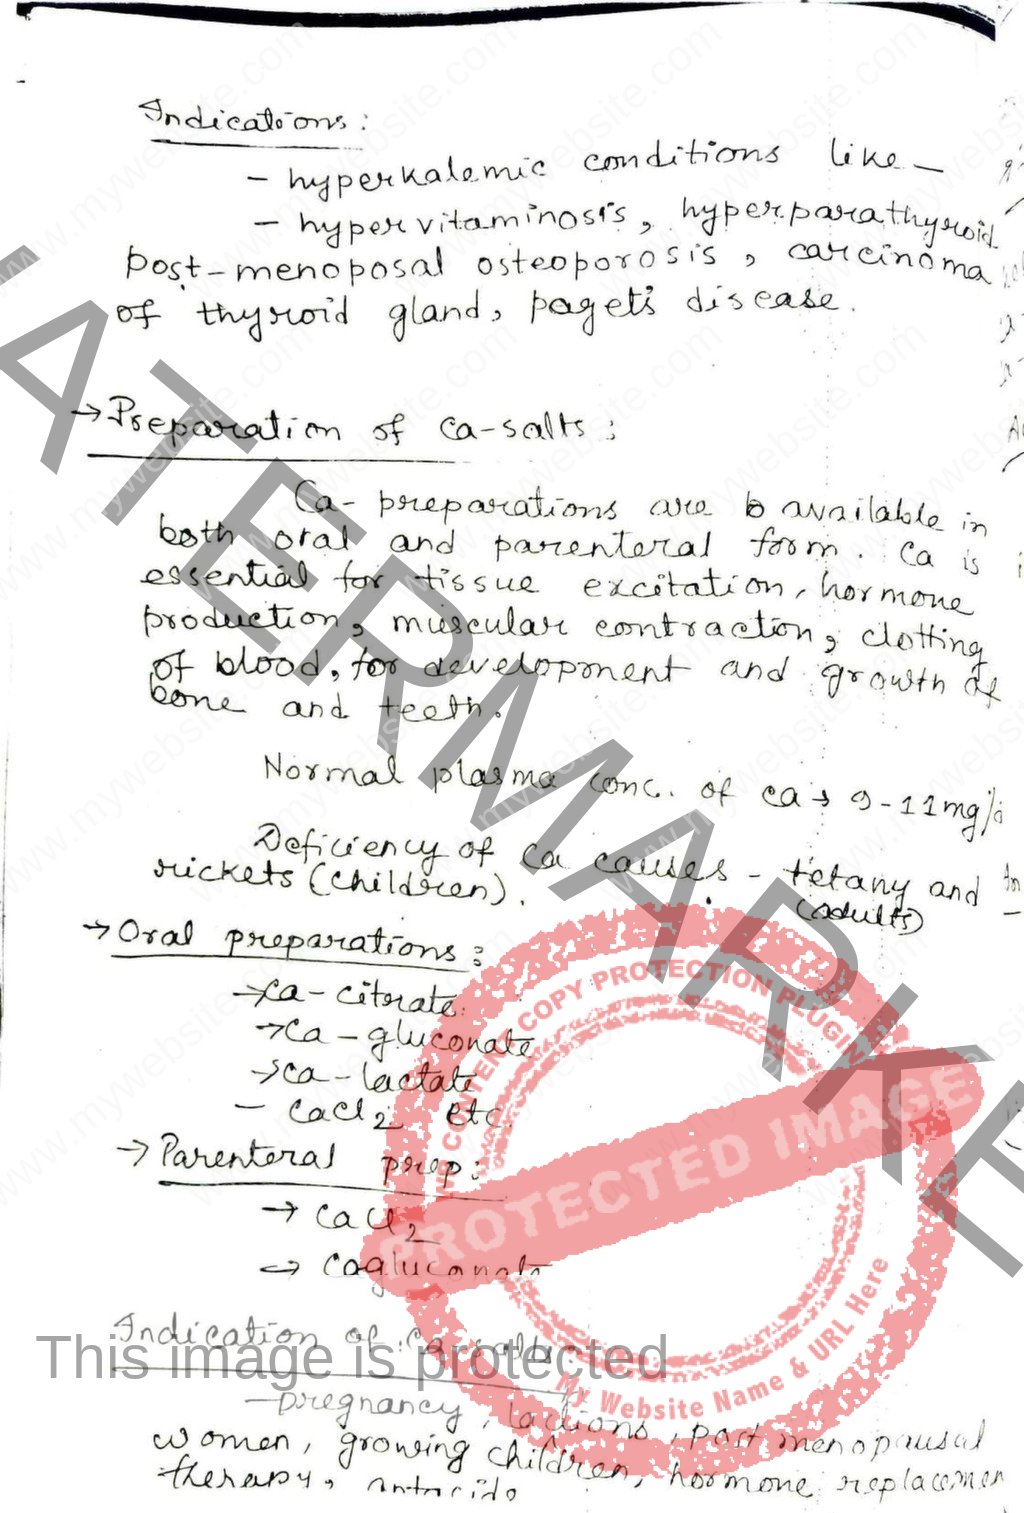 Indications:
- hyperkalemic conditions like -
- hypervitaminosis, hyperparathyroid
post-menoposal osteoporosis, carcinoma
of thyroid gland, paget's disease.
→ Preparation of Ca-salts:
Ca- preparations are b available in
both oral and parenteral form. Ca is
essential for tissue excitation, hormone
production, muscular contraction, clotting
of blood, for development and growth of
bone and teeth.
Normal plasma conc. of Ca → 9-11mg%
Deficiency of Ca causes - tetany and
rickets (children). (adults)
→ Oral preparations:
→ Ca-citrate
→ Ca-gluconate
→ Ca-lactate
- CaCl2 etc.
→ Parenteral prep:
→ CaCl2
→ Cagluconate
Indication of Ca-salts
- pregnancy, lactions, post menopausal
women, growing children, hormone replacemen
therapy, antacids
WATERMARKED
This image is protected
WP CONTENT COPY PROTECTION PLUGIN
PROTECTED IMAGE
My Website Name & URL Here
www.mywebsite.com